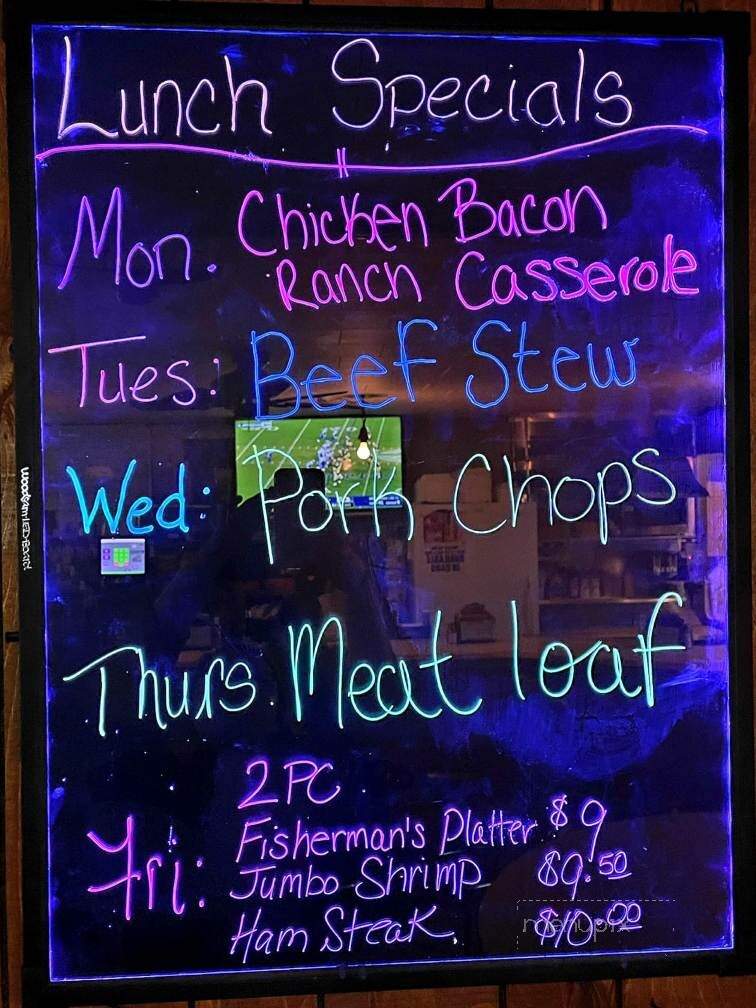 Lunch Specials
Mon. Chicken Bacon
Ranch Casserole
Tues: Beef Stew
Wed: Pork Chops
Thurs. Meat loaf
2 PC
Fri: Fisherman's Platter $9
Jumbo Shrimp $9.50
Ham Steak. $10.00
menupix